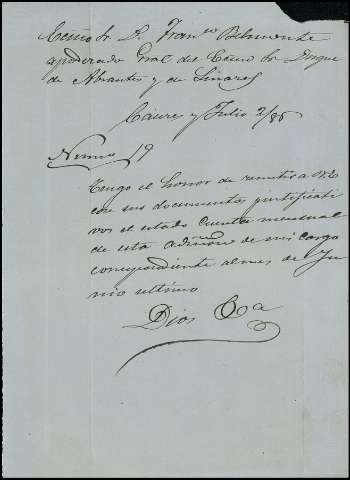 Excmo Sr. D. Franco Belmonte
apoderado Gral del Excmo Sr. Duque
de Abrantes y de Linares
y Julio 2/86
Numo 19
Tengo el honor de remitir a V.E
con sus documentos justificati
vos el estado cuenta mensual
de esta admiñon de mi cargo
correspondiente al mes de Ju
nio ultimo
Dios Oa